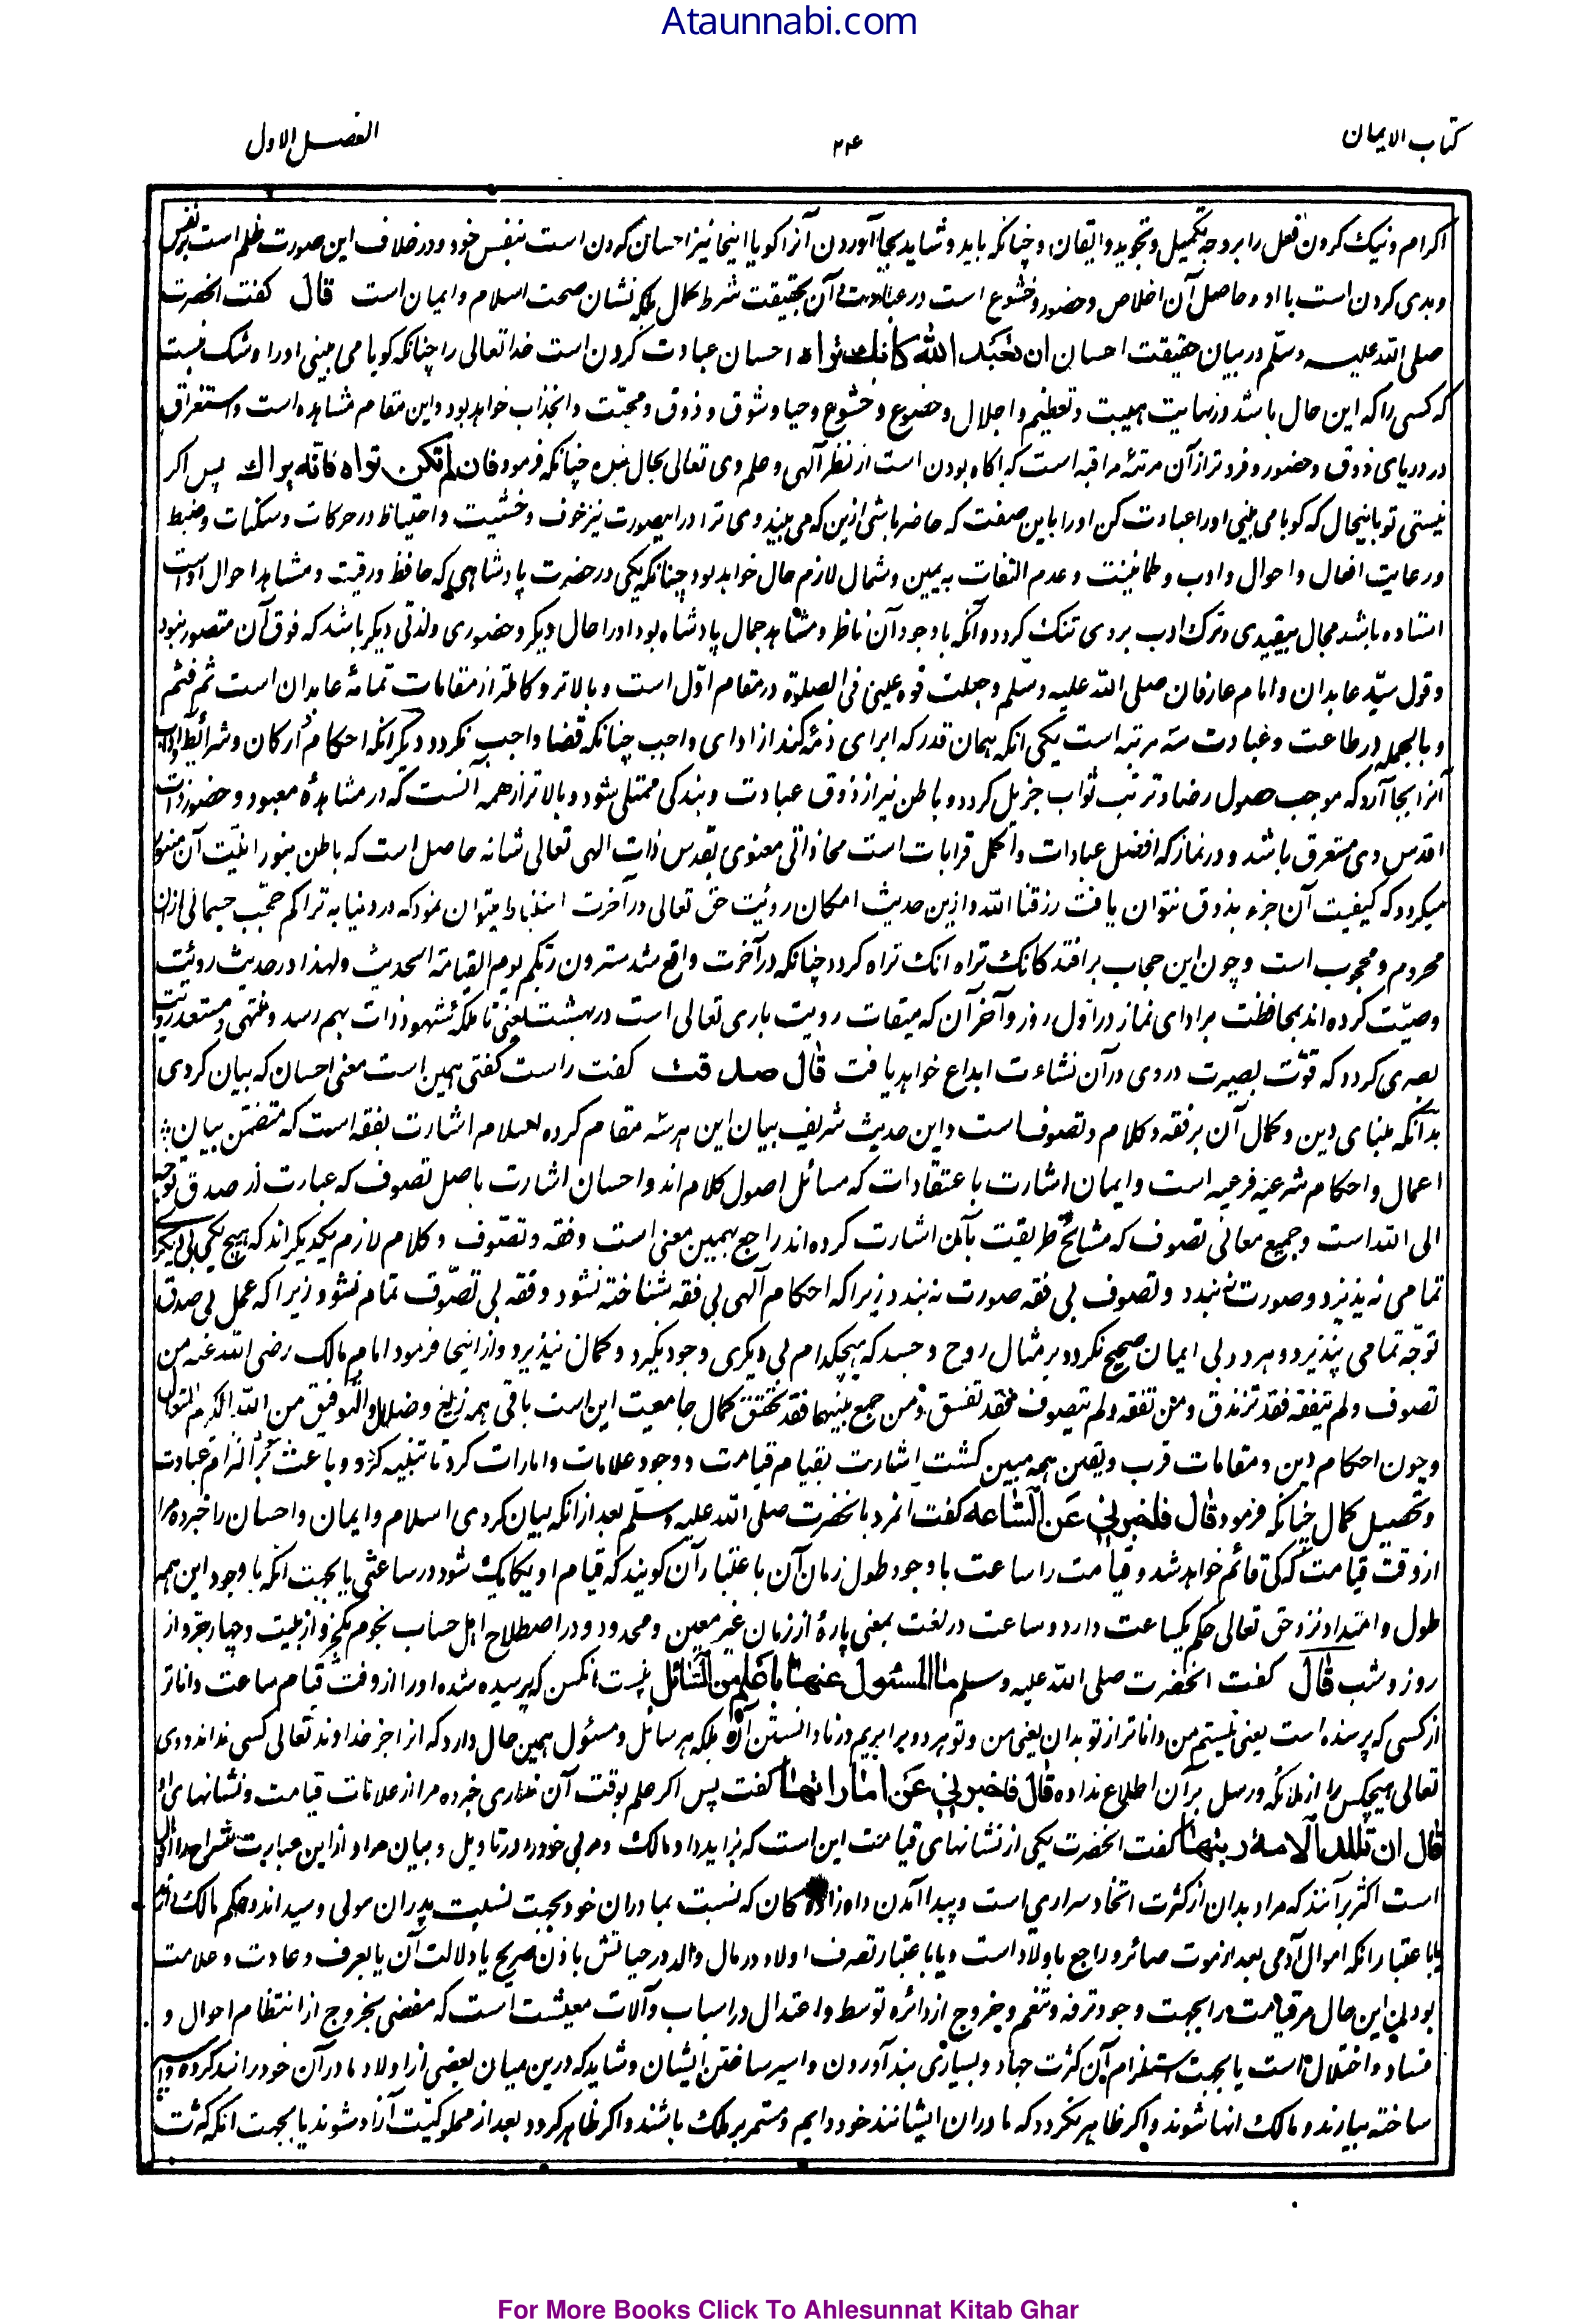 Ataunnabi.com
کتاب الایمان
۲۴
الفصل الاول
اکرام و نیک کردن فعل را بر وجه تکمیل و تجوید و اتقان و چنانکه باید و شاید بجا آوردن آنرا گویا اینجا نیز احسان کردن است بنفس خود و در خلاف این صورت ظلم است بر نفس
و بدی کردن است با او و حاصل آن اخلاص و حضور و خشوع است در عبادت و آن بحقیقت شرط کمال بلکه نشان صحت اسلام و ایمان است قال گفت آنحضرت
صلی الله علیه وسلم در بیان حقیقت احسان ان تعبد الله کانك تراه احسان عبادت کردن است خدا تعالی را چنانکه گویا می بینی او را و شک نیست
که کسی را که این حال باشد در نهایت هیبت و تعظیم و اجلال و خضوع و خشوع و حیا و شوق و ذوق و محبت و انجذاب خواهد بود و این مقام مشاهده است و استغراق
در دریای ذوق و حضور و فروتر از آن مرتبهٔ مراقبه است که آگاه بودن است از نظر آلهی و علم وی تعالی بحال بنده چنانکه فرمود فان لم تکن تراه فانه یراك پس اگر
نیستی تو باینحال که گویا می بینی او را عبادت کن او را باین صفت که حاضر باشی ازین که می بیند وی ترا درا ینصورت نیز خوف و خشیت و احتیاط در حرکات و سکنات و ضبط
و رعایت افعال و احوال و ادب و طمانینت و عدم التفات به یمین و شمال لازم حال خواهد بود چنانکه یکی در حضرت پادشاهی که حافظ و رقیب و مشاهد احوال اوست
استاده باشد مجال بیقیدی و ترک ادب بر وی تنک گردد و آنکه با وجود آن ناظر و مشاهد جمال پادشاه بود او را حال دیگر و حضوری و لذتی دیگر باشد که فوق آن متصور نبود
و قول سید عابدان و امام عارفان صلی الله علیه وسلم وجعلت قرة عینی فی الصلوة در مقام اول است و بالاتر و کاملتر از مقامات تمامهٔ عابدان است ثم فثم
و بالجمله در طاعت و عبادت سه مرتبه است یکی آنکه همان قدر که ابرای ذمه کند از ادای واجب چنانکه قضا واجب نگردد و دیگر آنکه احکام ارکان و شرائط و آداب
آنرا بجا آرد که موجب حصول رضا و ترتب ثواب جزیل گردد و باطن نیز از ذوق عبادت و بندگی ممتلی شود و بالاتر از همه آنست که در مشاهدهٔ معبود و حضور ذات
اقدس وی مستغرق باشد و در نماز که افضل عبادات و اکمل قرابات است محاذاتی معنوی بقدس ذات الهی تعالی شانه حاصل است که باطن بنورانیت آن منور
میگردد که کیفیت آن جزء بذوق نتوان یافت رزقنا الله و ازین حدیث امکان رؤیت حق تعالی در آخرت استنباط میتوان نمود که در دنیا به تراکم حجب جسمانی از آن
محروم و محجوب است و چون این حجاب برافتد کانک تراه انک تراه گردد چنانکه در آخرت واقع شد سترون ربکم یوم القیامة الحدیث و لهذا در حدیث رؤیت
وصیت کرده اند بمحافظت بر ادای نماز در اول روز و آخر آن که میقات رویت باری تعالی است در بهشت یعنی تا ملکهٔ شهود ذات بهم رسد و منتهی و مستعد رؤیت
بصری گردد که قوت بصیرت در وی در آن نشاءت ابداع خواهد یافت قال صدقت گفت راست گفتی همین است معنی احسان که بیان کردی
بدانکه بنای دین و کمال آن بر فقه و کلام و تصوف است و این حدیث شریف بیان این هر سه مقام کرده اسلام اشارت بفقه است که متضمن بیان
اعمال و احکام شرعیه فرعیه است و ایمان اشارت باعتقادات که مسائل اصول کلام اند و احسان اشارت باصل تصوف که عبارت از صدق توجه
الی الله است و جمیع معانی تصوف که مشایخ طریقت بآن اشارت کرده اند راجع بهمین معنی است و فقه و تصوف و کلام لازم یکدیگر اند که هیچ یکی بی دیگر
تمامی نه پذیرد و صورت نه بندد و تصوف بی فقه صورت نه بندد زیرا که احکام آلهی بی فقه شناخته نشود و فقه بی تصوف تمام نشود زیرا که عمل بی صدق
توجه تمامی نپذیرد و هر دو بی ایمان صحیح نگردد بر مثال روح و جسد که هیچکدام بی دیگری وجود نگیرد و کمال نپذیرد و از اینجا فرمود امام مالک رضی الله عنه من
تصوف ولم یتفقه فقد تزندق ومن تفقه ولم یتصوف فقد تفسق ومن جمع بینهما فقد تحقق کمال جامعیت این است باقی همه زیغ و ضلال والتوفیق من الله الکریم المتعال
و چون احکام دین و مقامات قرب و یقین همه مبین گشت اشارت بقیام قیامت و وجود علامات و امارات کرد تا تنبیه گردد و باعث بر التزام عبادت
و تحصیل کمال چنانکه فرمود قال فاخبرنی عن الساعه گفت آنمرد بآنحضرت صلی الله علیه وسلم بعد از آنکه بیان کردی اسلام و ایمان و احسان را خبر ده مرا
از وقت قیامت که کی قائم خواهد شد و قیامت را ساعت با وجود طول زمان آن باعتبار آن گویند که قیام او یکایک شود در ساعتی یا بجهت آنکه با وجود این همه
طول و امتداد نزد حق تعالی حکم یکساعت دارد و ساعت در لغت بمعنی پارهٔ از زمان غیر معین و محدود و در اصطلاح اهل حساب نجوم یکجزو از بیست و چهار جزو از
روز و شب قال گفت آنحضرت صلی الله علیه وسلم ما المسئول عنها باعلم من السائل نیست آنکس که پرسیده شده او را از وقت قیام ساعت داناتر
از کسی که پرسنده است یعنی نیستم من داناتر از تو بدان یعنی من و تو هر دو برابریم در نادانستن آن بلکه هر سایل و مسئول همین حال دارد که آنرا جز خداوند تعالی کسی نداند و وی
تعالی هیچکس را از ملائکه و رسل بر آن اطلاع نداده قال فاخبرنی عن اماراتها گفت پس اگر علم بوقت آن نداری خبر ده مرا از علامات قیامت و نشانهای او
قال ان تلد الامة ربتها گفت آنحضرت یکی از نشانهای قیامت این است که بزاید داه مالک و مربی خود را در تاویل و بیان مراد از این عبارت شراح را اقوال
است اکثر بر آنند که مراد بدان از کثرت اتخاذ سراری است و پیدا آمدن داه زادگان که نسبت بمادران خود بجهت نسبت پدران مولی و سید اند و حکم مالک دارند
یا باعتبار آنکه اموال آدمی بعد از موت صائر و راجع باولاد است و یا باعتبار تصرف اولاد در مال والد در حیاتش باذن صریح یا دلالت آن یا بعرف و عادت و علامت
بودن این حال مر قیامت را بجهت وجود ترفه و تنعم و خروج از دائره توسط و اعتدال در اسباب و آلات معیشت است که مفضی بخروج از انتظام احوال و
فساد و اختلال است یا بجهت استلزام آن کثرت جهاد و بسیاری بند آوردن و اسیر ساختن ایشان و شاید که درین میان بعضی از اولاد مادر آن خود را بند کرده
ساخته بیارند و مالک آنها شوند و اگر ظاهر نگردد که مادران ایشانند خود دایم و مستمر بر ملک باشند و اگر ظاهر گردد بعد از مملوکیت آزاد شوند یا بجهت آنکه کثرت
For More Books Click To Ahlesunnat Kitab Ghar